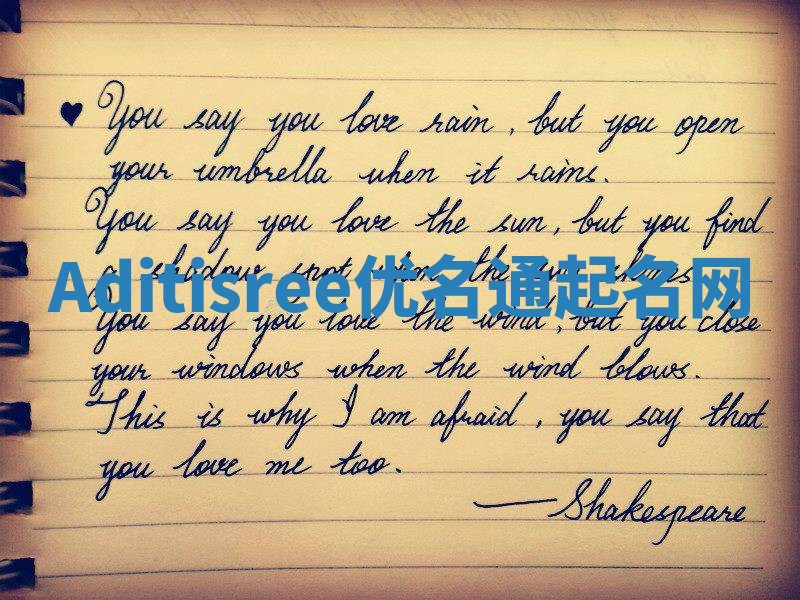 ♥ You say you love rain, but you open
your umbrella when it rains.
You say you love the sun, but you find
a shadow spot when the sun shines.
Aditisree优名通起名网
You say you love the wind, but you close
your windows when the wind blows.
This is why I am afraid, you say that
you love me too.
—Shakespeare